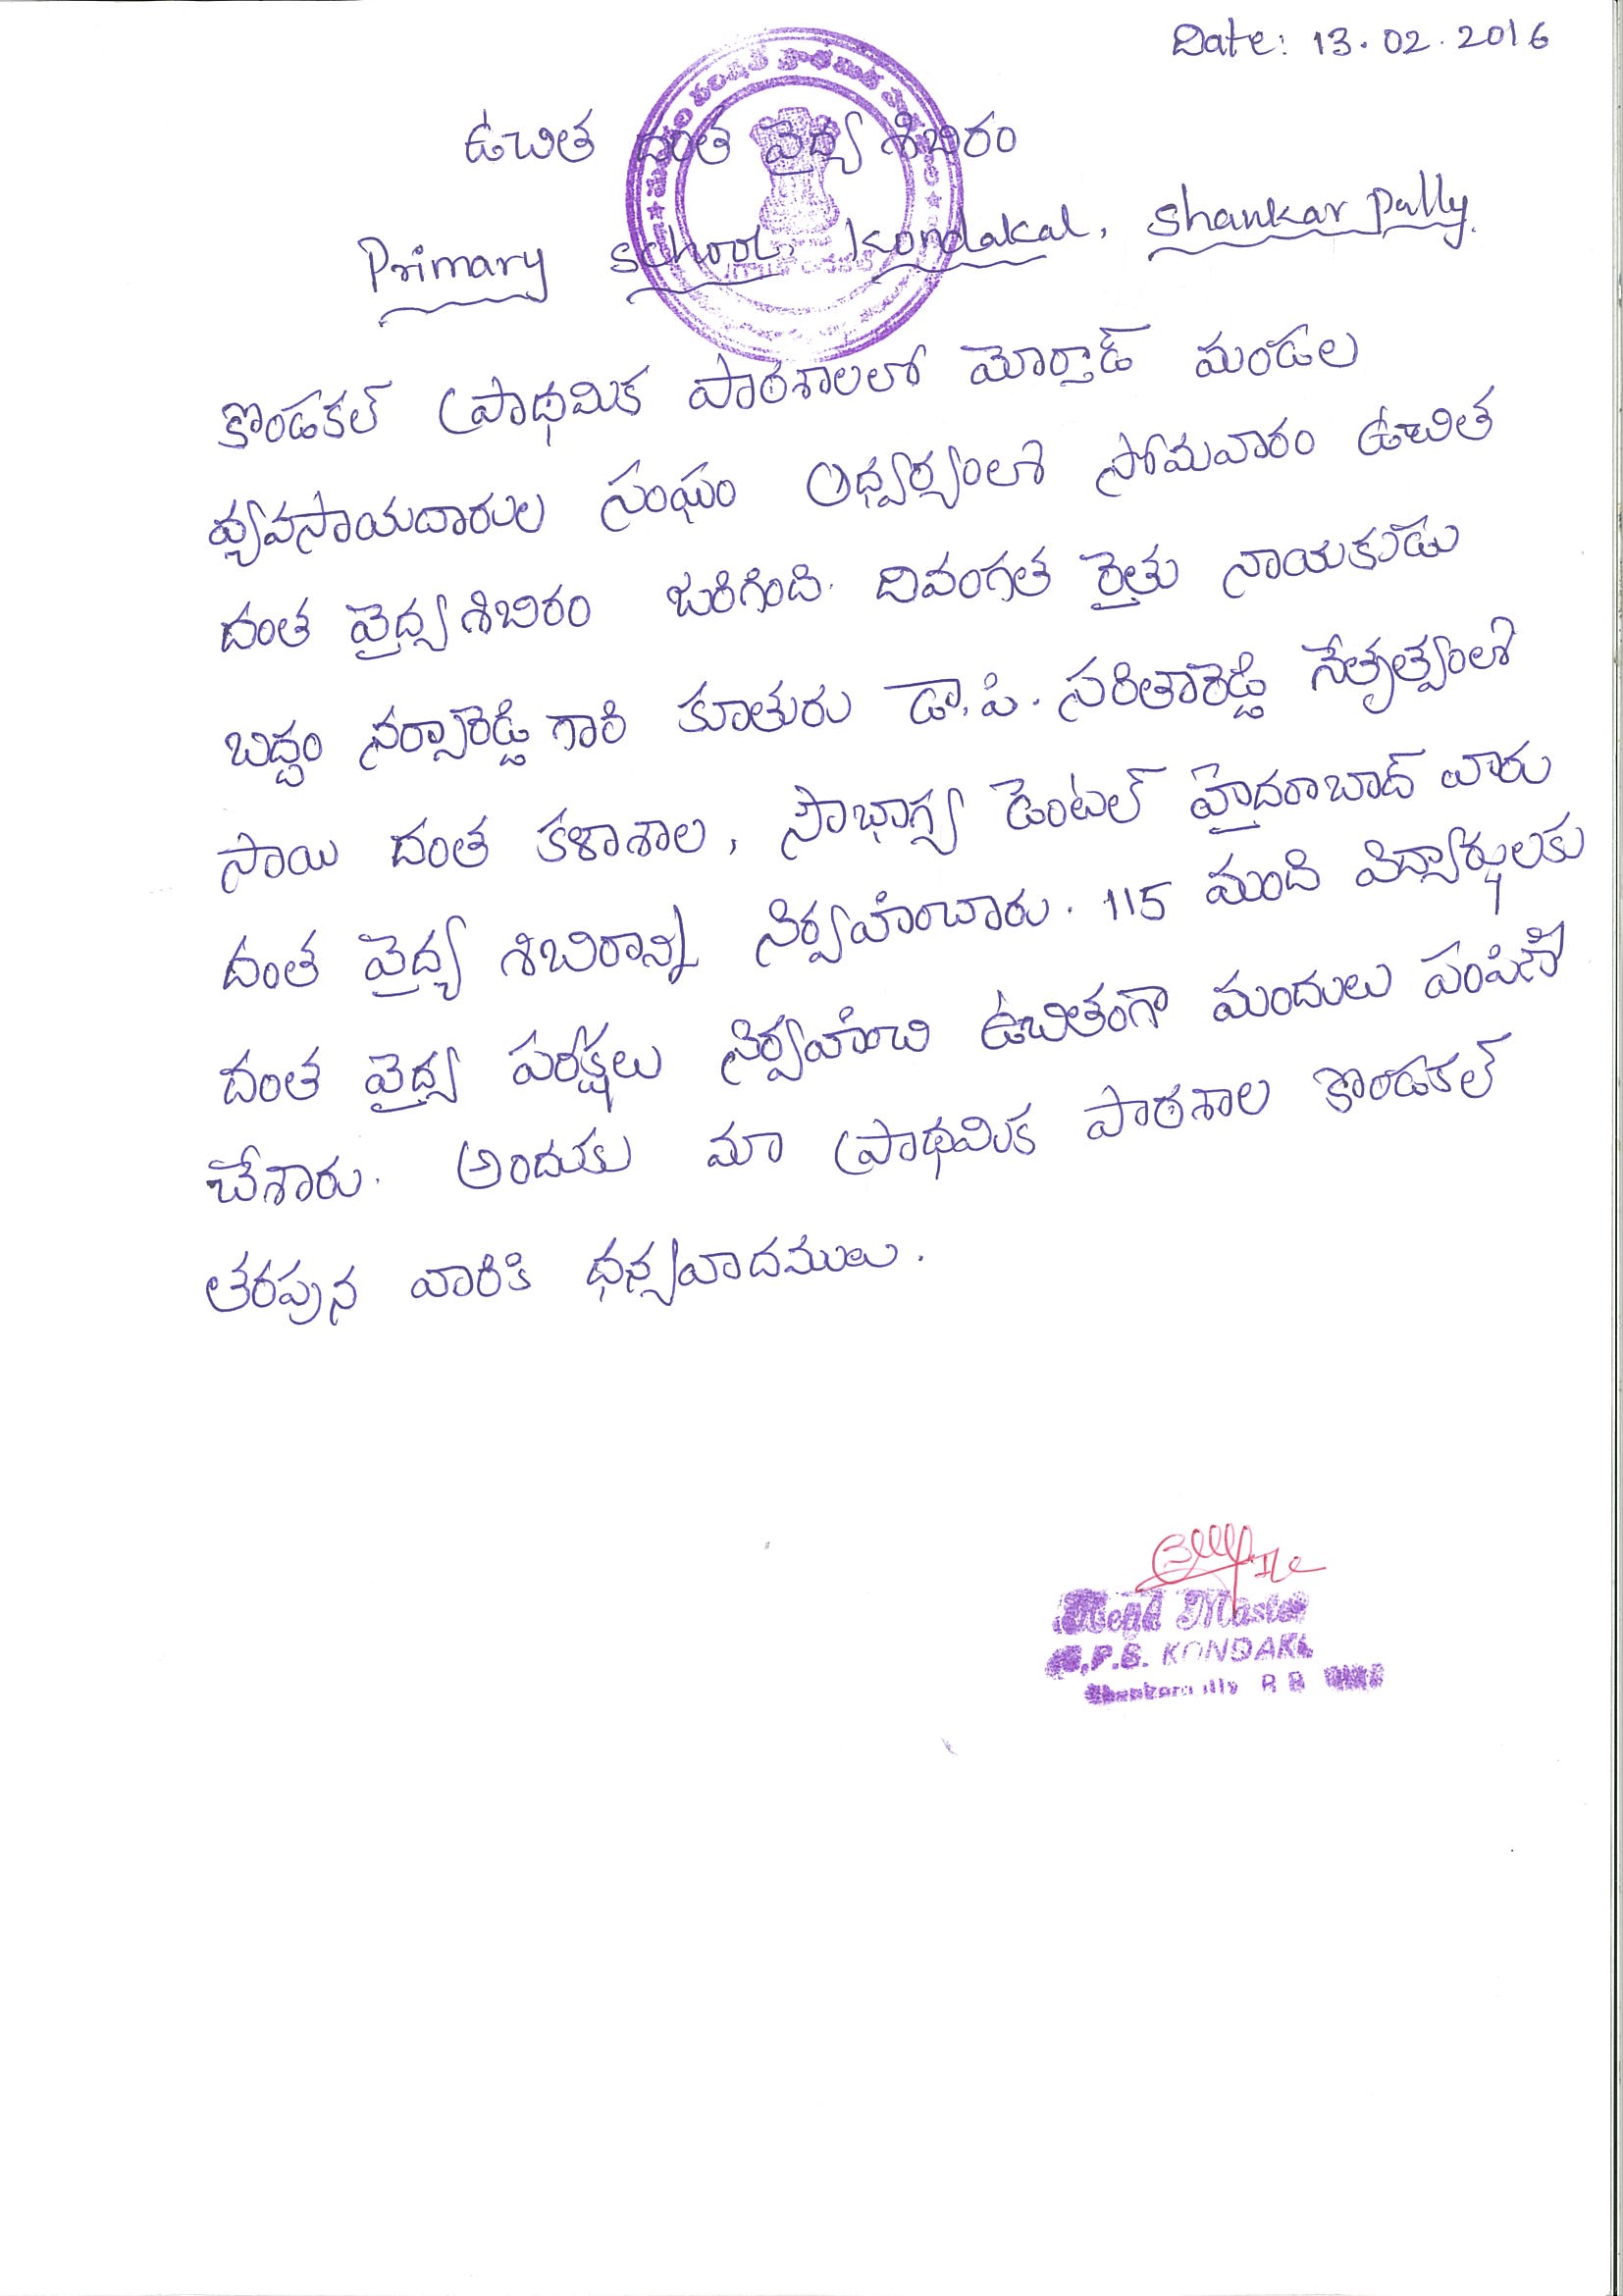 Date: 13.02.2016
ఉచిత దంత వైద్య శిబిరం
Primary school, Kondakal, Shankar pally.
కొండకల్ ప్రాథమిక పాఠశాలలో మోర్తాడ్ మండల
వ్యవసాయదారుల సంఘం ఆధ్వర్యంలో సోమవారం ఉచిత
దంత వైద్య శిబిరం జరిగింది. దివంగత రైతు నాయకుడు
బద్దం నర్సారెడ్డి గారి కూతురు డా.పి. సరితారెడ్డి నేతృత్వంలో
సాయి దంత కళాశాల, సౌభాగ్య డెంటల్ హైదరాబాద్ వారు
దంత వైద్య శిబిరాన్ని నిర్వహించారు. 115 మంది విద్యార్థులకు
దంత వైద్య పరీక్షలు నిర్వహించి ఉచితంగా మందులు పంపిణీ
చేశారు. అందుకు మా ప్రాథమిక పాఠశాల కొండకల్
తరపున వారికి ధన్యవాదములు.
Head Master
P.S. KONDAKL